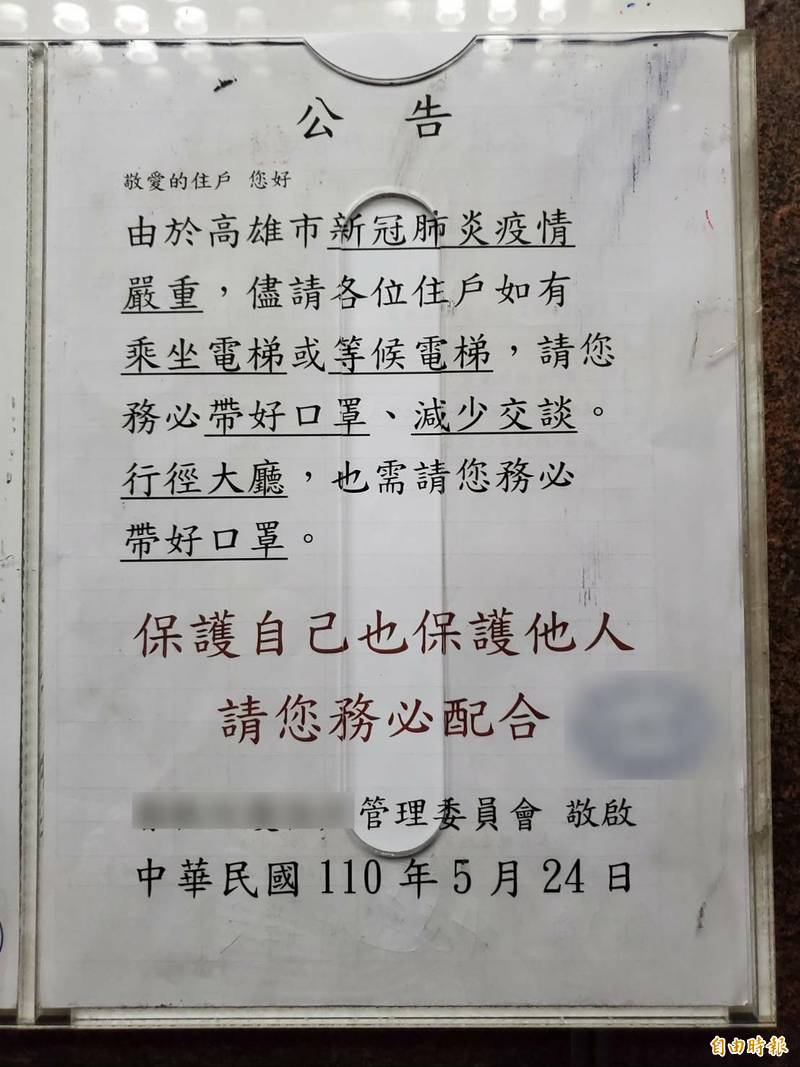 公 告
敬愛的住戶 您好
由於高雄市新冠肺炎疫情
嚴重，儘請各位住戶如有
乘坐電梯或等候電梯，請您
務必帶好口罩、減少交談。
行徑大廳，也需請您務必
帶好口罩。
保護自己也保護他人
請您務必配合
管理委員會 敬啟
中華民國 110 年 5 月 24 日
自由時報